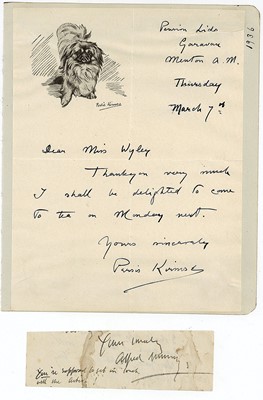 1936
Garavan
Menton A. M.
Thursday
March 7
Dear Miss Wyley
Thank you very much
I shall be delighted to come
to tea on Monday next.
Yours sincerely
Persis Kirmse
Yours
Alfred
You're supposed to get in touch
with the